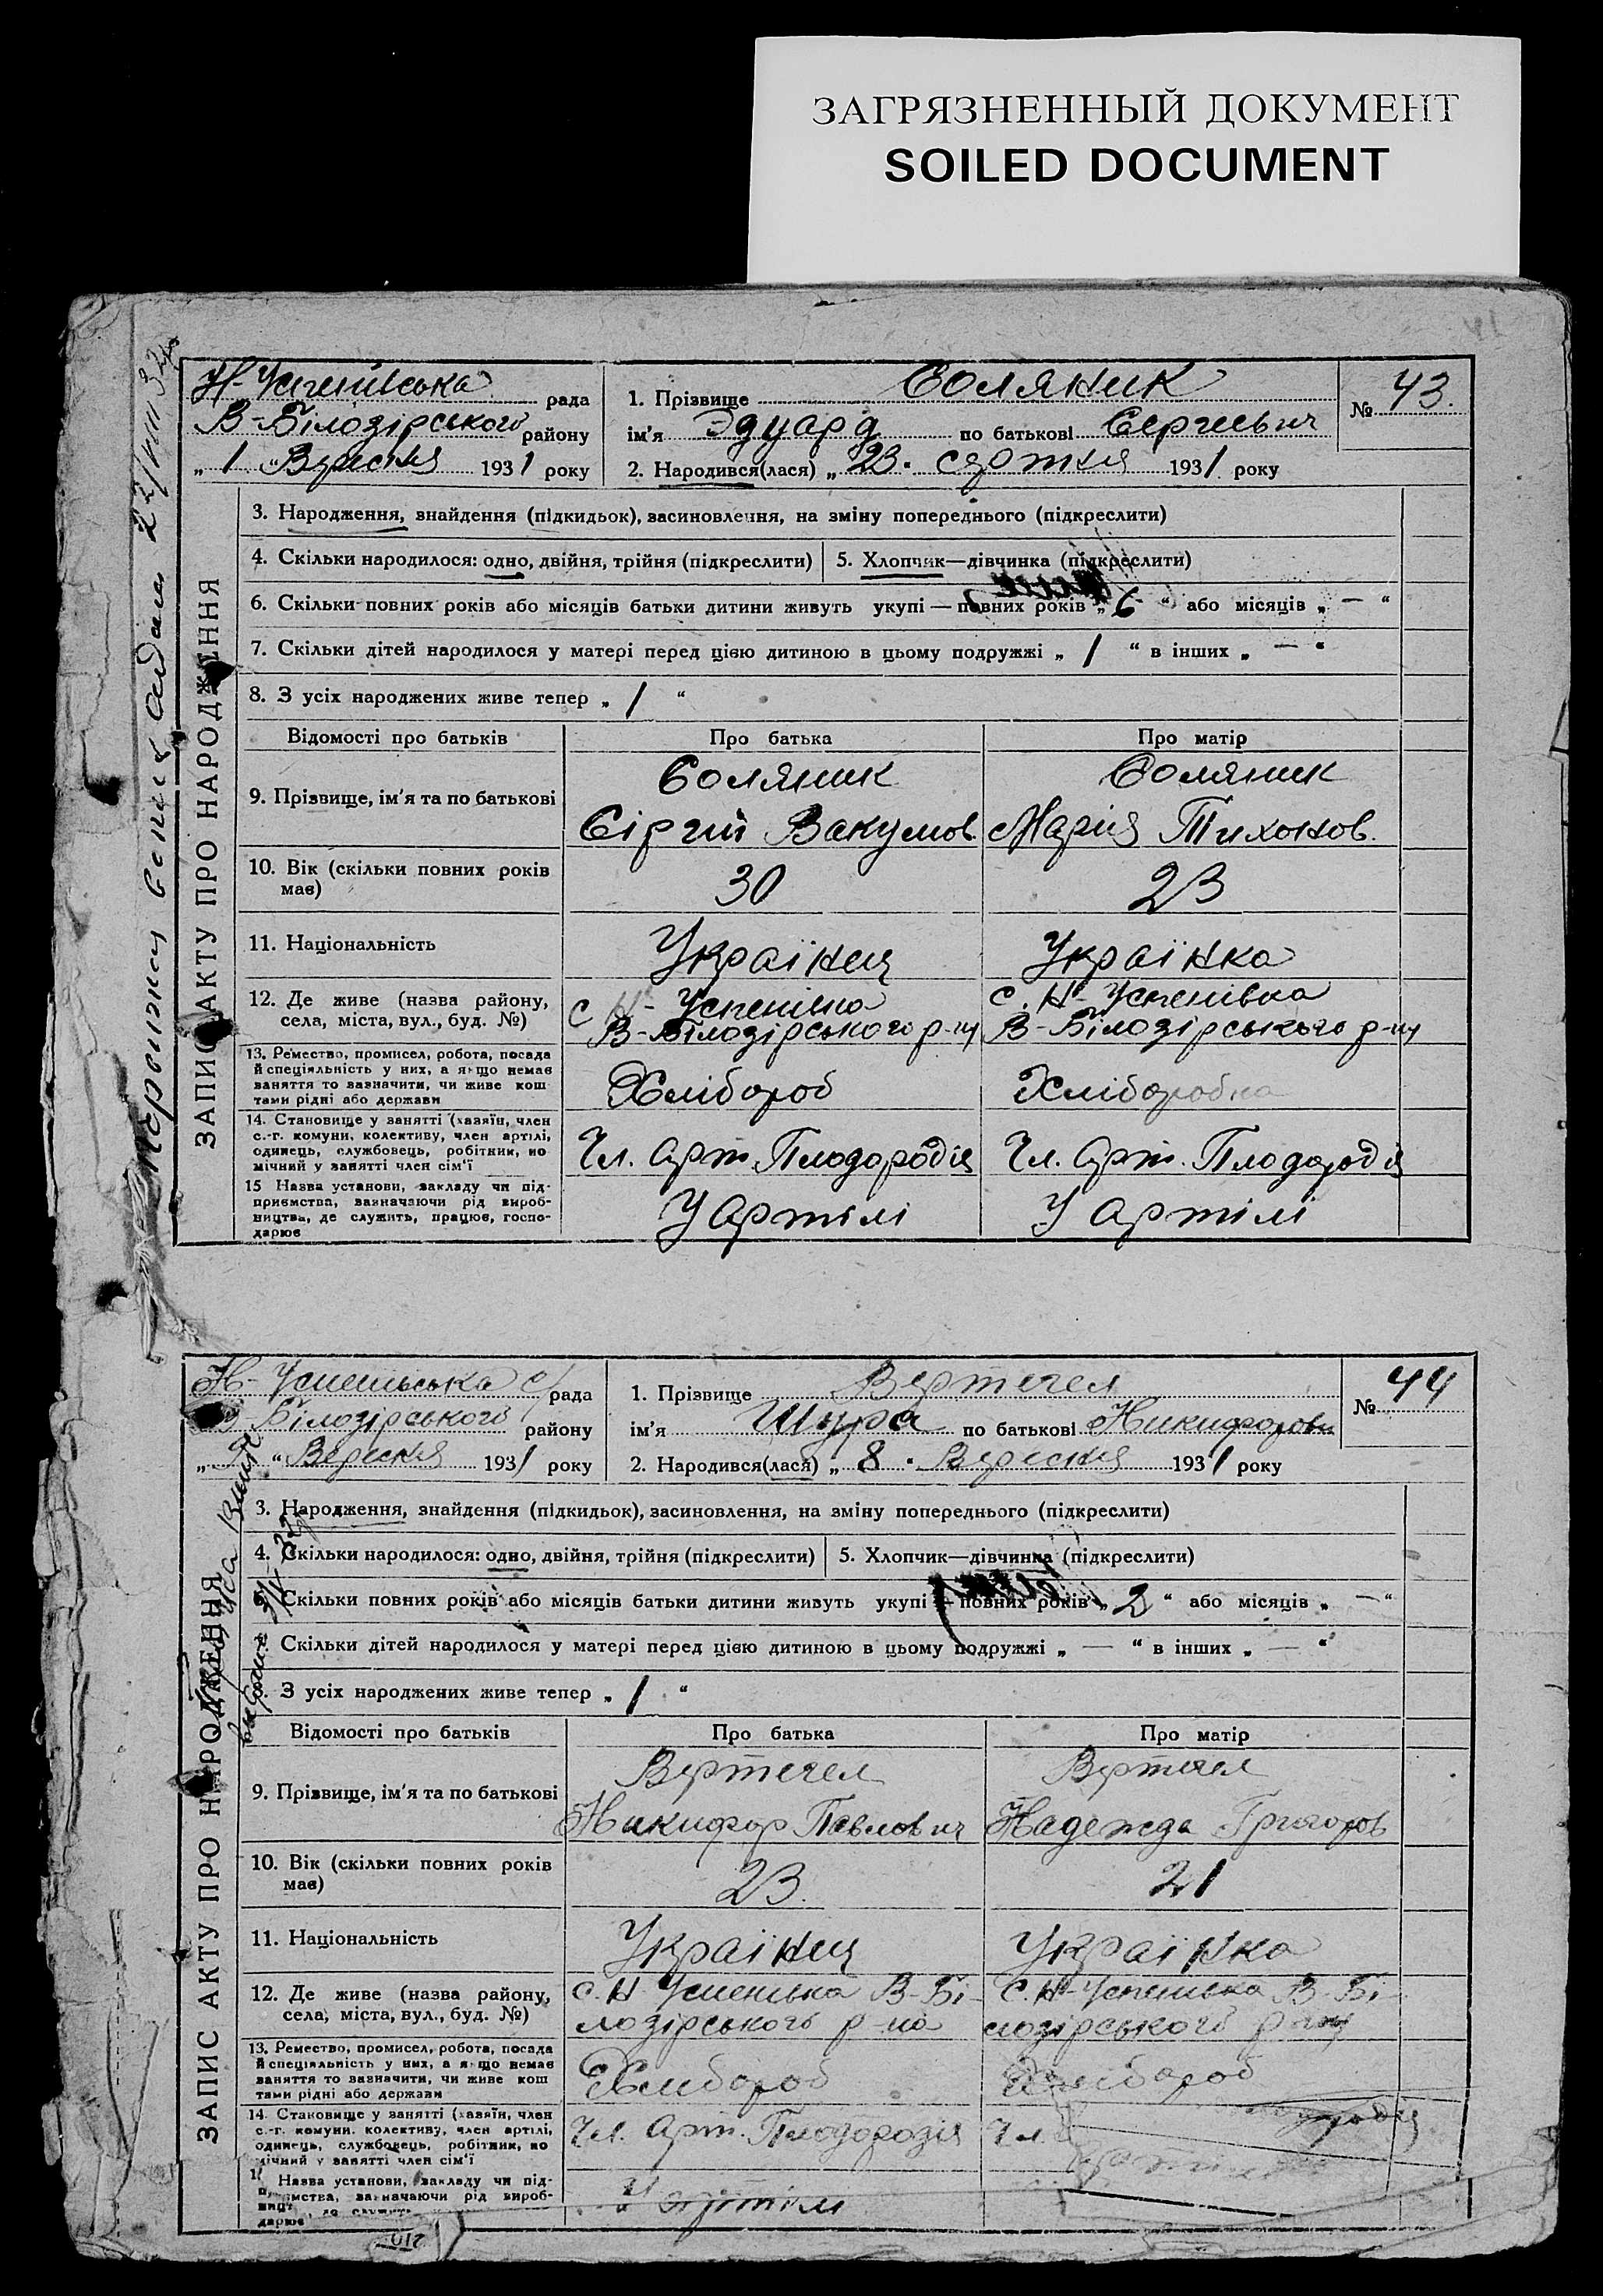 ЗАГРЯЗНЕННЫЙ ДОКУМЕНТ
SOILED DOCUMENT
Н-Успенівська рада
В-Білозірського району
„ 1 “ Вересня 1931 року
1. Прізвище Соляник
ім'я Эдуард по батькові Сергиевич
2. Народився(лася) „ 23 “ серпня 1931 року
№ 43.
ЗАПИС АКТУ ПРО НАРОДЖЕННЯ
3. Народження, знайдення (підкидьок), засиновлення, на зміну попереднього (підкреслити)
4. Скільки народилося: одно, двійня, трійня (підкреслити)
5. Хлопчик—дівчинка (підкреслити)
6. Скільки повних років або місяців батьки дитини живуть укупі — повних років „ 6 “ або місяців „ — “
7. Скільки дітей народилося у матері перед цією дитиною в цьому подружжі „ 1 “ в інших „ — “
8. З усіх народжених живе тепер „ 1 “
Відомості про батьків Про батька Про матір
9. Прізвище, ім'я та по батькові
Соляник
Сіргий Вакумов
Соляник
Мария Тихонов.
10. Вік (скільки повних років має)
30
23
11. Національність
Українец
Українка
12. Де живе (назва району, села, міста, вул., буд. №)
с Н-Успенівка
В-Білозірського р-ну
с. Н-Успенівка
В-Білозірського р-ну
13. Ремество, промисел, робота, посада
й спеціяльність у них, а якщо немає
заняття то зазначити, чи живе кош
тами рідні або держави
Хлібороб
Хліборобка
14. Становище у занятті (хазяїн, член
с.-г. комуни, колективу, член артілі,
одинець, службовець, робітник, по
мічний у занятті член сім'ї
Чл. Арт. Плодородія
Чл. Арт. Плодородія
15 Назва установи, закладу чи під-
приємства, зазначаючи рід вироб-
ництва, де служить, працює, госпо-
дарює
У Артілі
У Артілі
Н-Успенівська с/рада
В-Білозірського району
„ 9 “ Вересня 1931 року
1. Прізвище Вертегел
ім'я Шура по батькові Никифоровн
2. Народився(лася) „ 8 “ Вересня 1931 року
№ 44
ЗАПИС АКТУ ПРО НАРОДЖЕННЯ
3. Народження, знайдення (підкидьок), засиновлення, на зміну попереднього (підкреслити)
4. Скільки народилося: одно, двійня, трійня (підкреслити)
5. Хлопчик—дівчинка (підкреслити)
Скільки повних років або місяців батьки дитини живуть укупі — повних років „ 2 “ або місяців „ — “
7. Скільки дітей народилося у матері перед цією дитиною в цьому подружжі „ — “ в інших „ — “
З усіх народжених живе тепер „ 1 “
Відомості про батьків Про батька Про матір
9. Прізвище, ім'я та по батькові
Вертегел
Никифор Павлович
Вертегел
Надежда Григоров
10. Вік (скільки повних років має)
23.
21
11. Національність
Українец
Українка
12. Де живе (назва району, села, міста, вул., буд. №)
с. Н Успенівка В-Бі-
лозірського р-на
с. Н-Успенівка В-Бі-
лозірського р-ну
13. Ремество, промисел, робота, посада
й спеціяльність у них, а якщо немає
заняття то зазначити, чи живе кош
тами рідні або держави
Хлібороб
Хлібороб
14. Становище у занятті (хазяїн, член
с.-г. комуни, колективу, член артілі,
одинець, службовець, робітник, по
мічний у занятті член сім'ї
Чл. Арт. Плодородія
Чл.
Назва установи, закладу чи під-
ємства, зазначаючи рід вироб-
дарює
У артілі